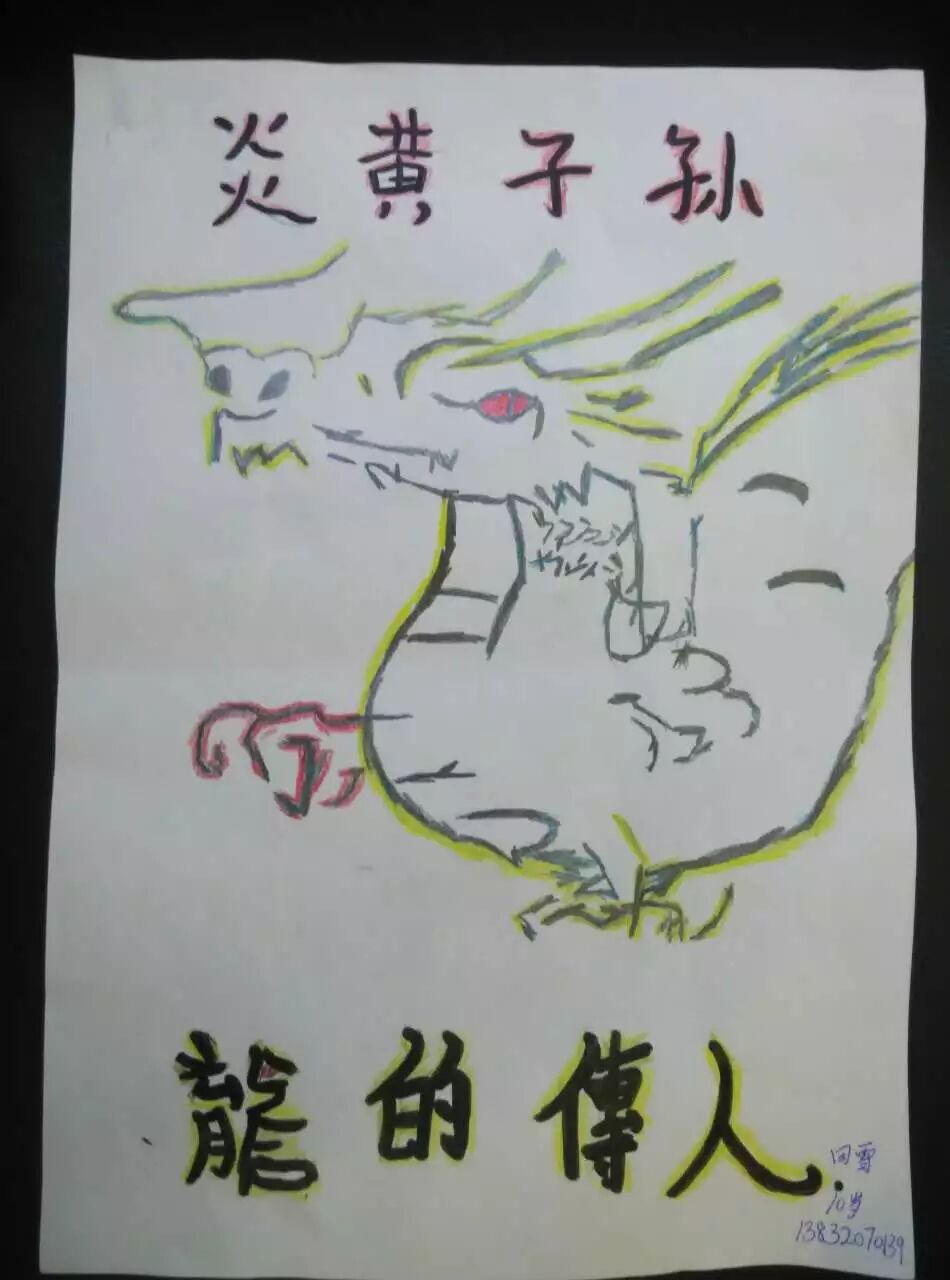 炎黄子孙
龍的傳人.
回雪
10岁
13832070139